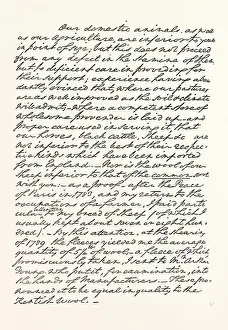 Our domestic animals, as well
as our agriculture, are inferior to yours
in point of size; but this does not proceed
from any defect in the stamina of them
but deficient care in providing for
their support; experience having abun-
dantly evinced that where our pastures
are as well improved as the soil & climate
will admit; where a competent store of
wholesome provender is laid up and
proper care used in serving it, that
our horses, black cattle, Sheep &c are
not inferior to the best of their respec-
tive kinds which have been imported
from England. Nor is the wool of our
sheep inferior to that of the common sort
with you: as a proof, after the Peace
of Paris in 1783, and my return to the
occupations of a farmer, I paid parti-
cular attention to my breed of sheep (of which I
usually kept about seven or eight hun-
dred). By this attention, at the shearing
of 1789, the fleeces yielded me the average
quantity of 5¼ of wool; a fleece of which
promiscuously taken, I sent to Mr. Arthur
Young, who put it, for examination, into
the hands of Manufacturers. These pro-
nounced it to be equal in quality to the
Kentish Wool.